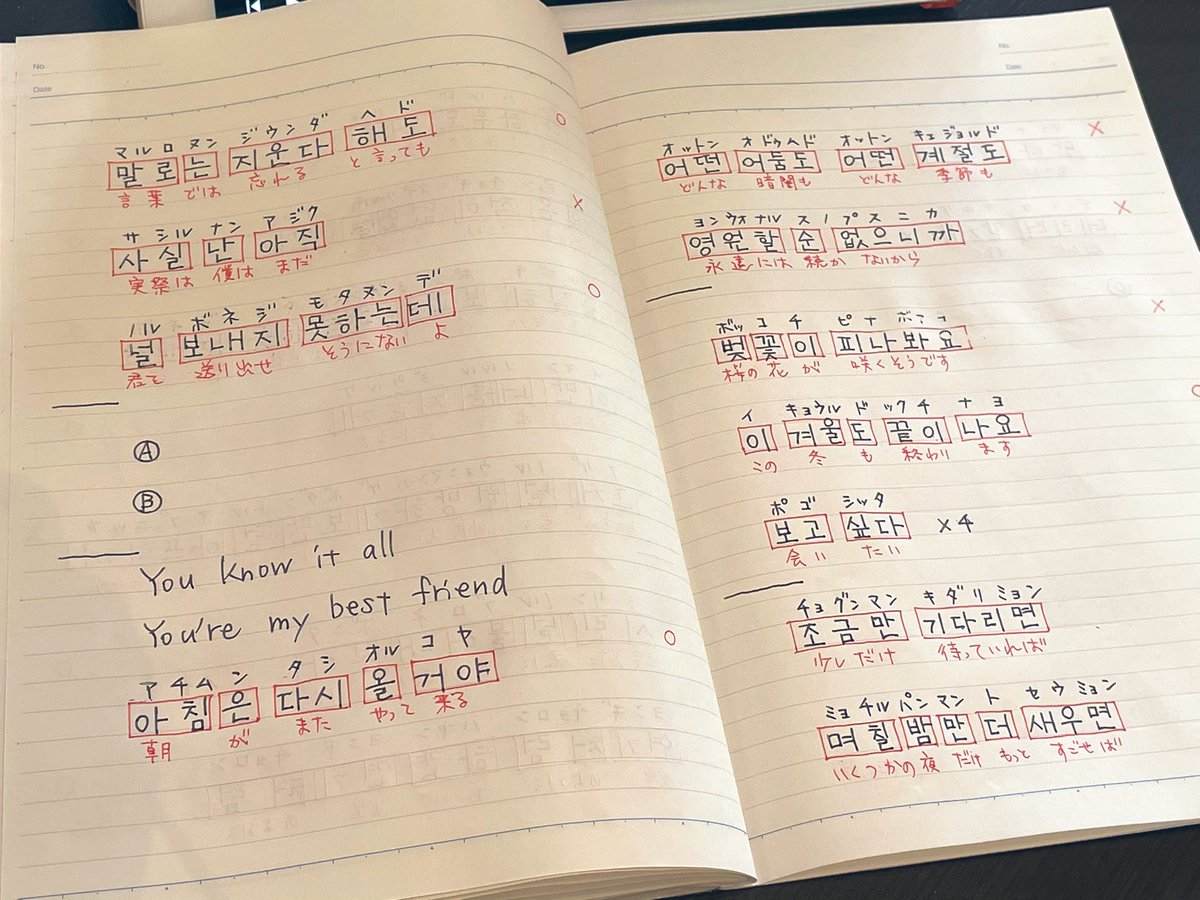 No.
Date
マル ロ ヌン ジウンダ ヘド
말로는 지운다 해도
言葉 では 忘れる と言っても
サシル ナン アジク
사실 난 아직
実際は 僕は まだ
ノル ボネジ モタヌンデ
널 보내지 못하는데
君を 送り出せ そうにない よ
Ⓐ
Ⓑ
You know it all
You're my best friend
アチムン タシ オル コヤ
아침은 다시 올 거야
朝 が また やって 来る
No.
Date
オットン オドゥムド オットン キェジョルド
어떤 어둠도 어떤 계절도
どんな 暗闇も どんな 季節も
ヨンウォナル スノプスニカ
영원할 순 없으니까
永遠には 続か ないから
ボッコチ ピナボァヨ
벚꽃이 피나봐요
桜の花 が 咲くそうです
イ キョウルド ックチ ナヨ
이 겨울도 끝이 나요
この 冬 も 終わり ます
ポゴ シッタ
보고 싶다 ×4
会い たい
チョグンマン キダリミョン
조금만 기다리면
少しだけ 待っていれば
ミョチルパンマン ト セウミョン
며칠 밤만 더 새우면
いくつかの夜 だけ もっと すごせば